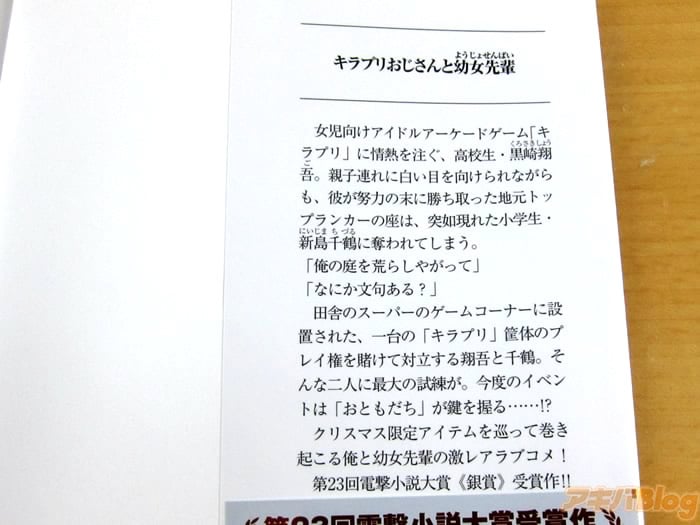 ようじょせんぱい
キラプリおじさんと幼女先輩
女児向けアイドルアーケードゲーム「キ
くろさきしょう
ラプリ」に情熱を注ぐ、高校生・黒崎翔
ご
吾。親子連れに白い目を向けられながら
も、彼が努力の末に勝ち取った地元トッ
プランカーの座は、突如現れた小学生・
にいじまちづる
新島千鶴に奪われてしまう。
「俺の庭を荒らしやがって」
「なにか文句ある?」
田舎のスーパーのゲームコーナーに設
置された、一台の「キラプリ」筐体のプ
レイ権を賭けて対立する翔吾と千鶴。そ
んな二人に最大の試練が。今度のイベン
トは「おともだち」が鍵を握る……!?
クリスマス限定アイテムを巡って巻き
起こる俺と幼女先輩の激レアラブコメ!
第23回電撃小説大賞《銀賞》受賞作!!
第23回電撃小説大賞受賞作
アキバBlog